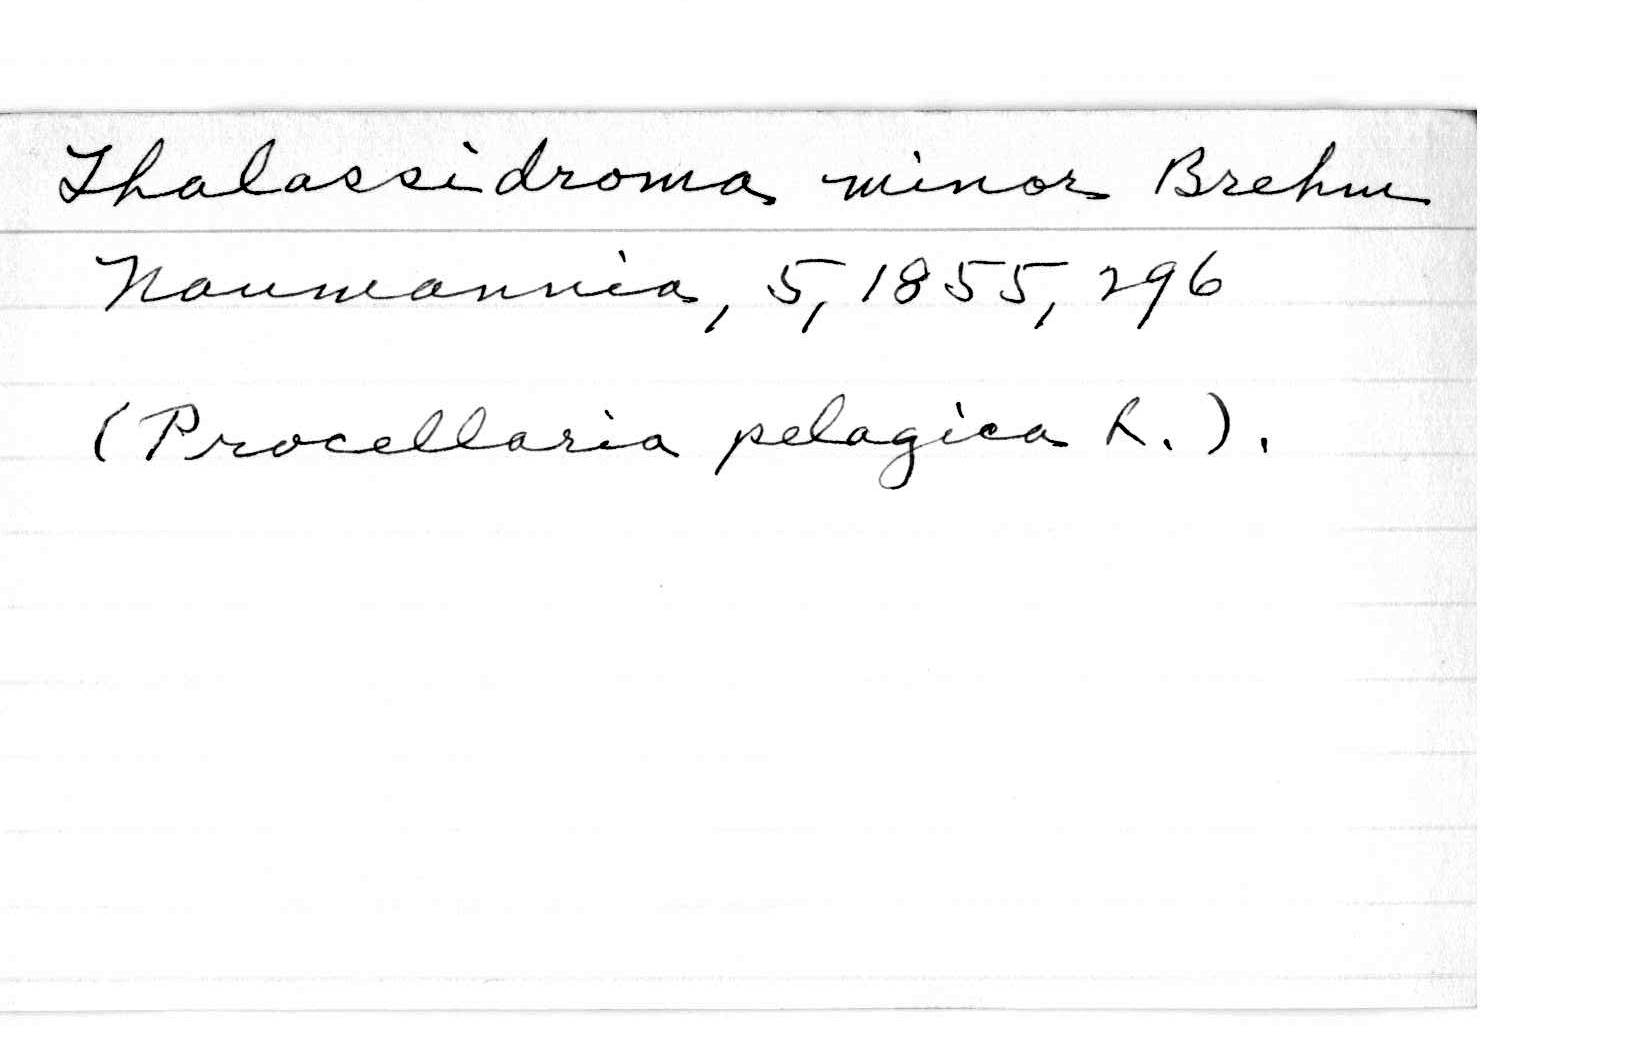 Thalassidroma minor Brehm
Naumannia, 5, 1855, 296
(Procellaria pelagica L.).